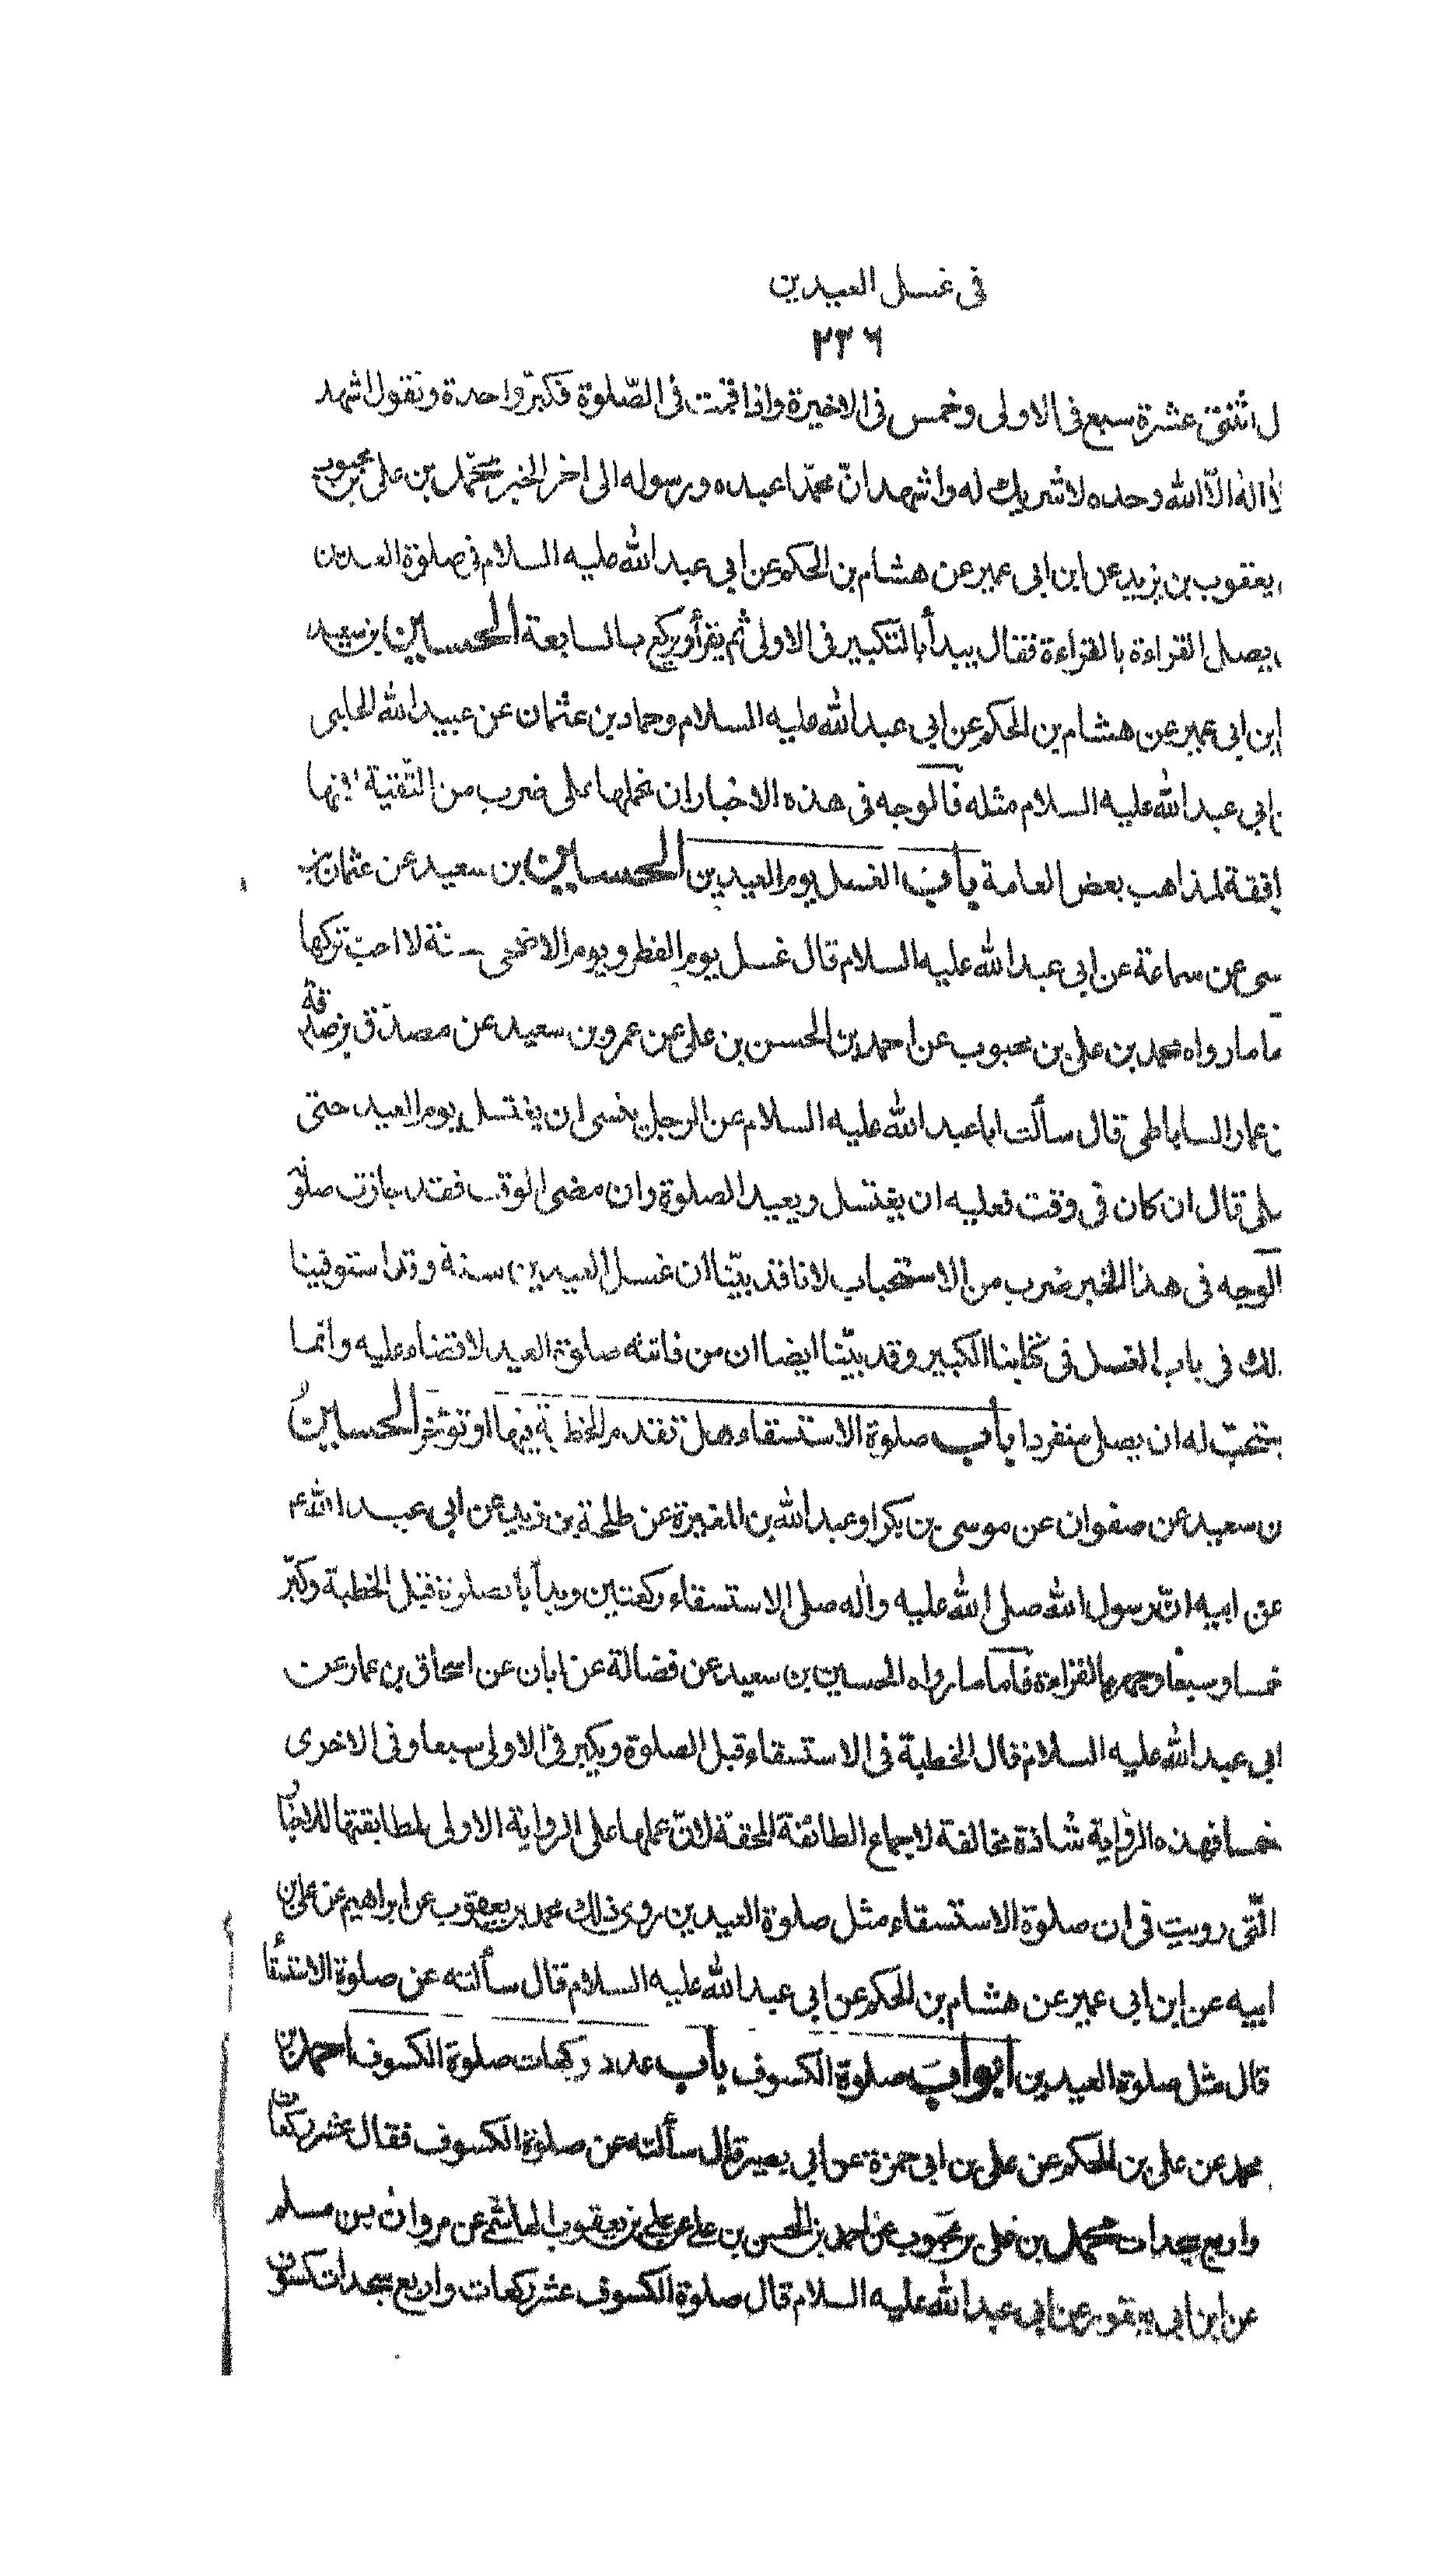 فى غسل العيدين
٢٣٦
ل اثنتى عشرة سبع فى الاولى وخمس فى الاخيرة واذا قمت فى الصّلوة فكبّر واحدة وتقول اشهد
لا اله الّا الله وحده لا شريك له واشهد انّ محمّدا عبده ورسوله الى اخر الخبر محمّد بن على بن محبوب
يعقوب بن يزيد عن ابن ابى عمير عن هشام بن الحكم عن ابى عبد الله عليه السلام فى صلوة العيدين
يصل القراءة بالقراءة فقال يبدأ بالتكبير فى الاولى ثم يقرأ ويركع بالسابعة الحسين بن سعيد
ابن ابى عمير عن هشام بن الحكم عن ابى عبد الله عليه السلام وحماد بن عثمان عن عبيد الله الحلبى
ابى عبد الله عليه السلام مثله فالوجه فى هذه الاخبار ان نحملها على ضرب من التقية لانها
افقة لمذاهب بعض العامة باب الغسل يوم العيدين الحسين بن سعيد عن عثمان بن
سى عن سماعة عن ابى عبد الله عليه السلام قال غسل يوم الفطر ويوم الاضحى سنة لا احبّ تركها
ما ما رواه محمد بن على بن محبوب عن احمد بن الحسن بن على عن عمرو بن سعيد عن مصدّق بن صدقة
عمار الساباطى قال سألت ابا عبد الله عليه السلام عن الرجل ينسى ان يغتسل يوم العيد حتى
صلى قال ان كان فى وقت فعليه ان يغتسل ويعيد الصلوة وان مضى الوقت فقد جازت صلوته
الوجه فى هذا الخبر ضرب من الاستحباب لانا قد بيّنا ان غسل العيدين سنة وقد استوفينا
لك فى باب الغسل فى كتابنا الكبير وقد بيّنا ايضا ان من فاتته صلوة العيد لا قضاء عليه وانما
يستحبّ له ان يصلى منفردا باب صلوة الاستسقاء وهل تقدم الخطبة فيها او تؤخر الحسين
بن سعيد عن صفوان عن موسى بن بكر او عبد الله بن المغيرة عن طلحة بن زيد عن ابى عبد الله ع
عن ابيه انّ رسول الله صلى الله عليه واله صلى الاستسقاء ركعتين وبدأ بالصلوة قبل الخطبة وكبّر
خمسا وسبعا وجهر بالقراءة فأما ما رواه الحسين بن سعيد عن فضالة عن ابان عن اسحاق بن عمار عن
ابى عبد الله عليه السلام قال الخطبة فى الاستسقاء قبل الصلوة ويكبر فى الاولى سبعا وفى الاخرى
خمسا فهذه الرّواية شاذة مخالفة لاجماع الطائفة المحقة لانّ عملها على الرواية الاولى لمطابقتها للاخبار
الّتى رويت فى ان صلوة الاستسقاء مثل صلوة العيدين روى ذلك محمد بن يعقوب عن ابراهيم عن على بن
ابيه عن ابن ابى عمير عن هشام بن الحكم عن ابى عبد الله عليه السلام قال سألته عن صلوة الاستسقاء
قال مثل صلوة العيدين ابواب صلوة الكسوف باب عدد ركعات صلوة الكسوف احمد بن
محمد عن على بن الحكم عن على بن ابى حمزة عن ابى بصير قال سألته عن صلوة الكسوف فقال عشر ركعات
واربع سجدات محمد بن على بن محبوب عن احمد بن الحسن بن على عن على بن يعقوب الهاشمى عن مروان بن مسلم
عن ابن ابى يعفور عن ابى عبد الله عليه السلام قال صلوة الكسوف عشر ركعات واربع سجدات كسوف